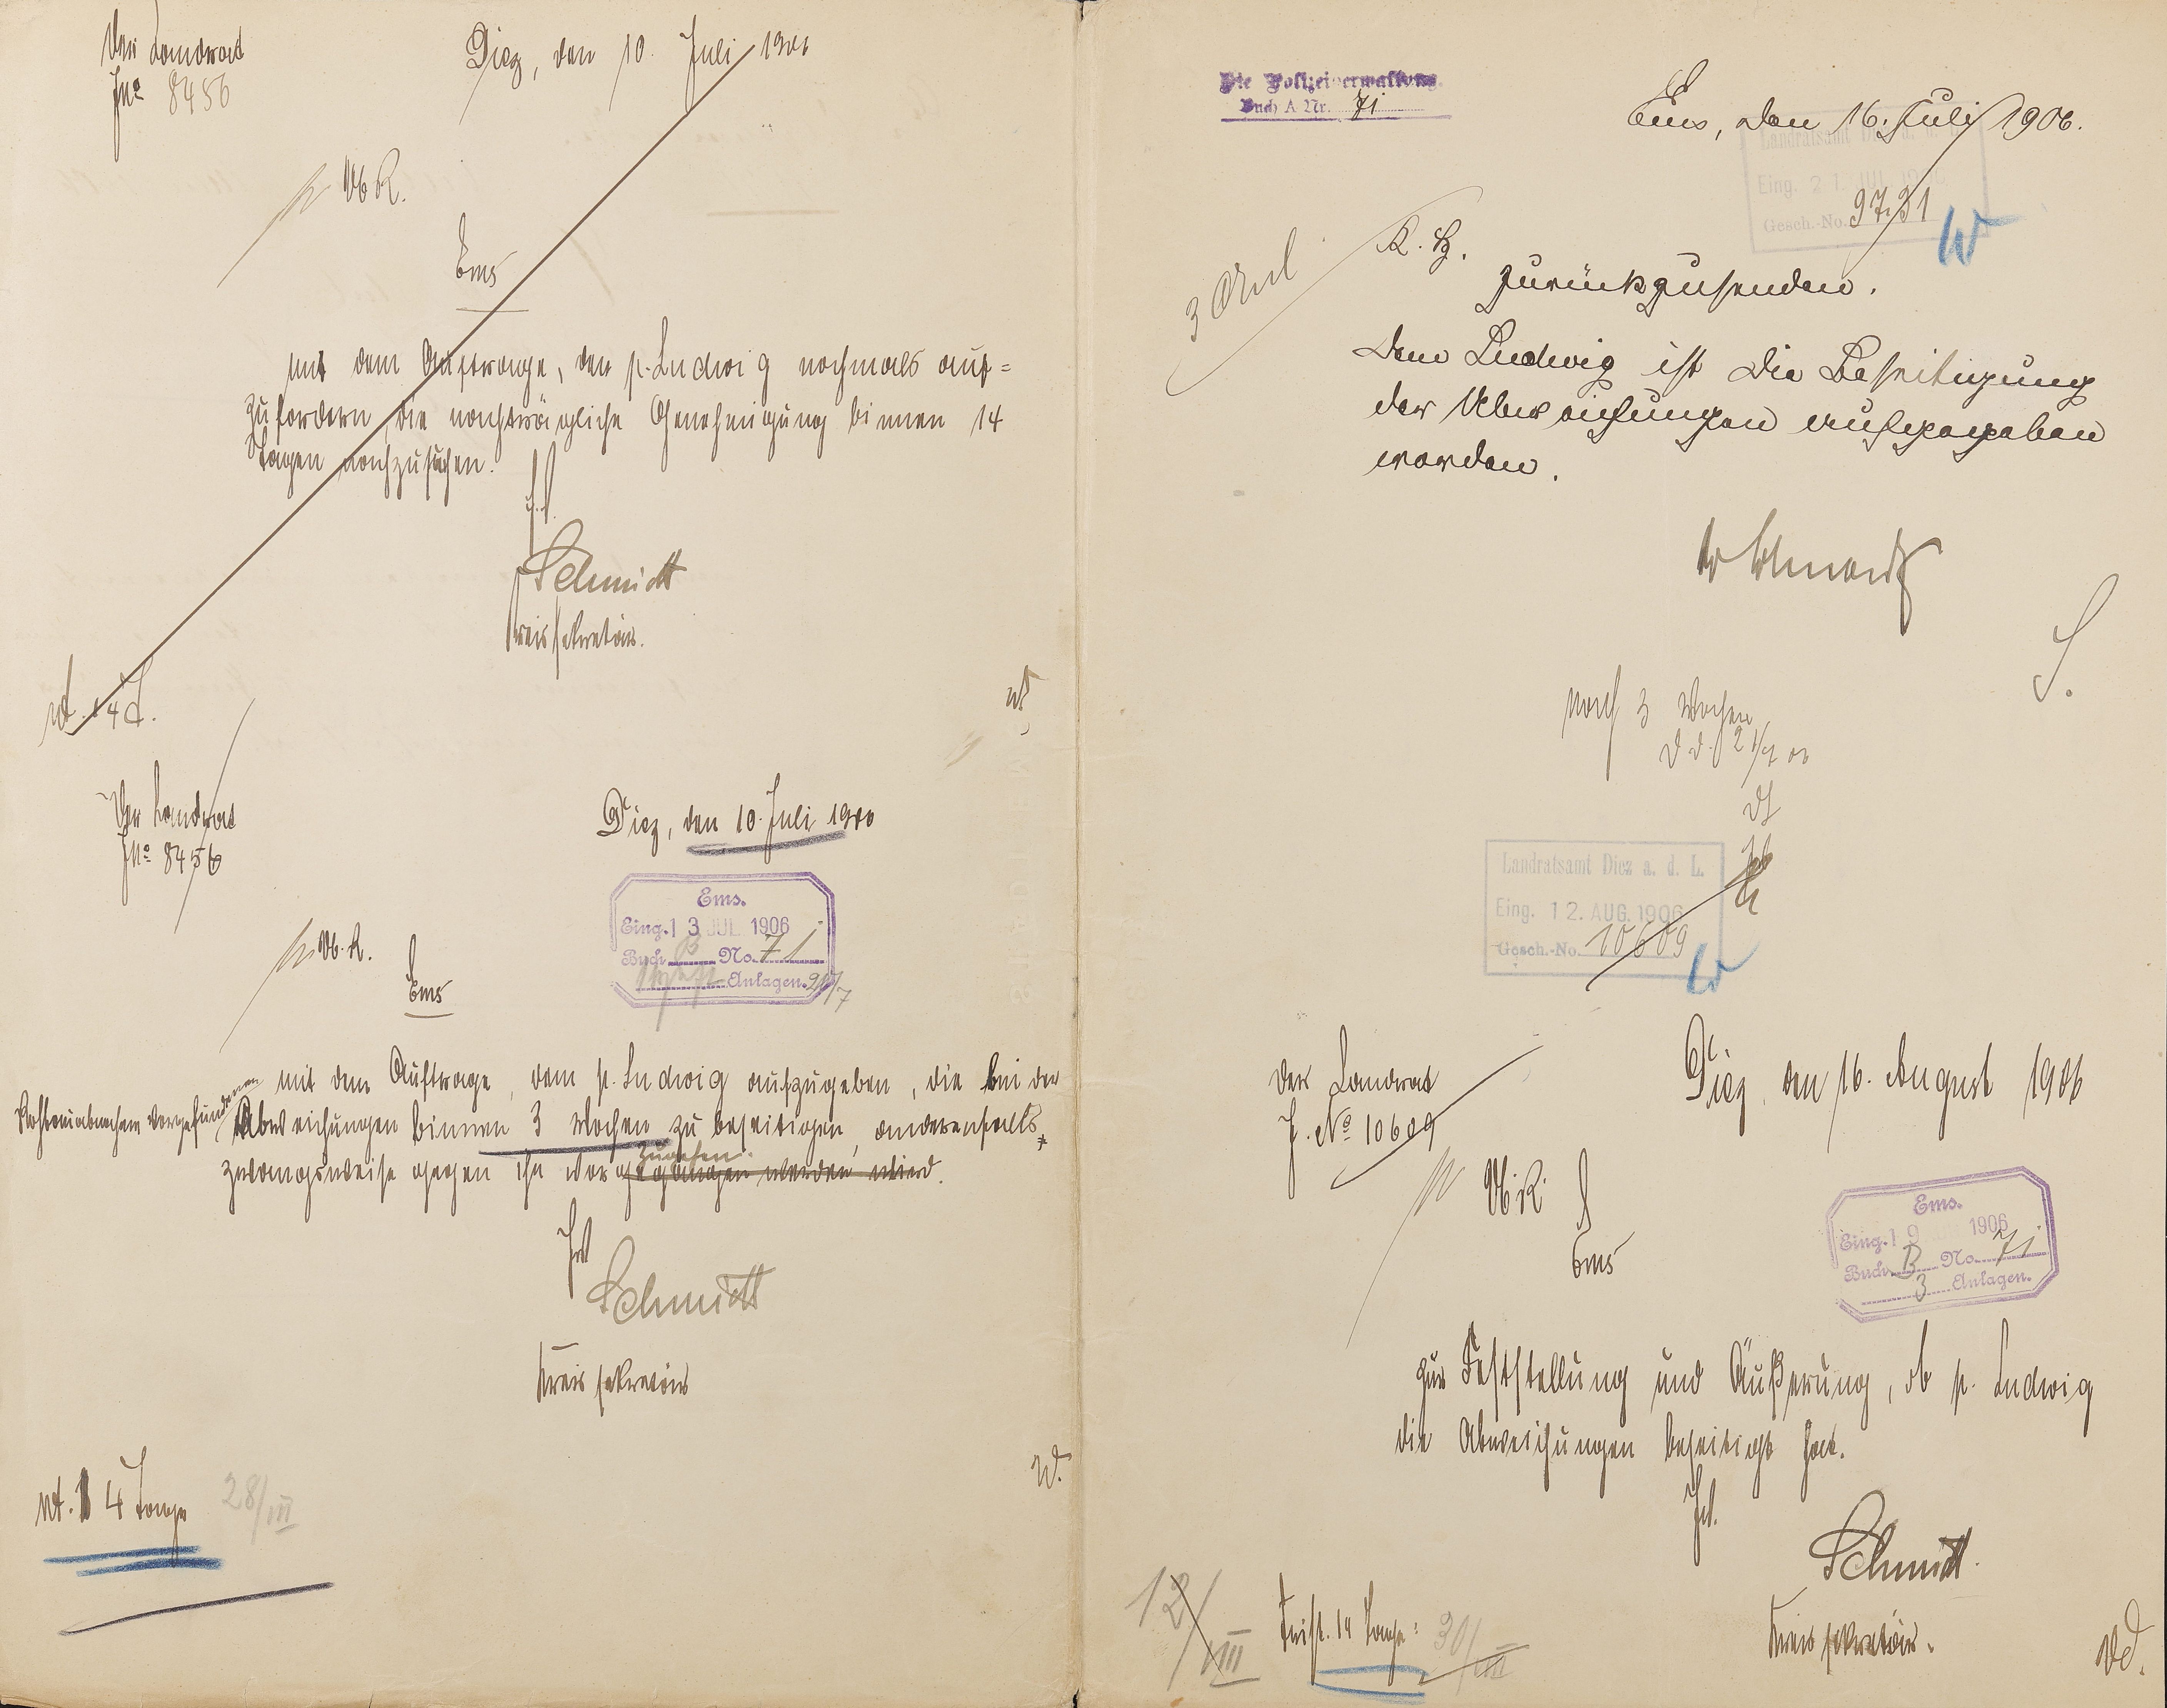 Der Landrat
JNo 8456
Diez, den 10. Juli 1906
p UbR.
Ems
mit dem Auftrage, den p. Ludwig nochmals auf=
zufordern die nachträgliche Genehmigung binnen 14
Tagen nachzusuchen.
J.V.
Schmidt
Kreissekretär.
Wd.
Der Landrat
JNo 8456
Diez, den 10. Juli 1906
Ems.
Eing. 13 JUL 1906
Buch B No. 71
Anlagen.
p Ub.R.
Ems
mit dem Auftrage, dem p. Ludwig aufzugeben, die bei der
Rohbauabnahme vorgefundenen
Abweichungen binnen 3 Wochen zu beseitigen, anderenfalls
zugehen.
zwangsweise gegen ihn vorgegangen werden wird.
J.V.
Schmidt
Kreissekretär
Wd.
nt. 14 Tage
28/VII
Die Polizeiverwaltung.
Buch A Nr. 71
Ems, den 16. Juli 1906.
Landratsamt Diez a. d. L.
Eing. 21. JUL 1906
Gesch.-No. 9731
3 Anl
K. H.
zurückzusenden.
Dem Ludwig ist die Beseitigung
der Abweichungen aufgegeben
worden.
S.
nach 3 Wochen
D. d. 21/7 06
Landratsamt Diez a. d. L.
Eing. 12. AUG. 1906
Gesch.-No. 10609
Der Landrat
J. No 10609
Diez, den 16. August 1906
p UbR
Ems
Ems.
Eing. 19 1906
Buch B No. 71
3 Anlagen.
zur Feststellung und Äußerung, ob p. Ludwig
die Abweichungen beseitigt hat.
J.V.
Schmidt.
Kreissekretär.
12/VIII
Frist. 14 Tage:
30/VIII
Wd.